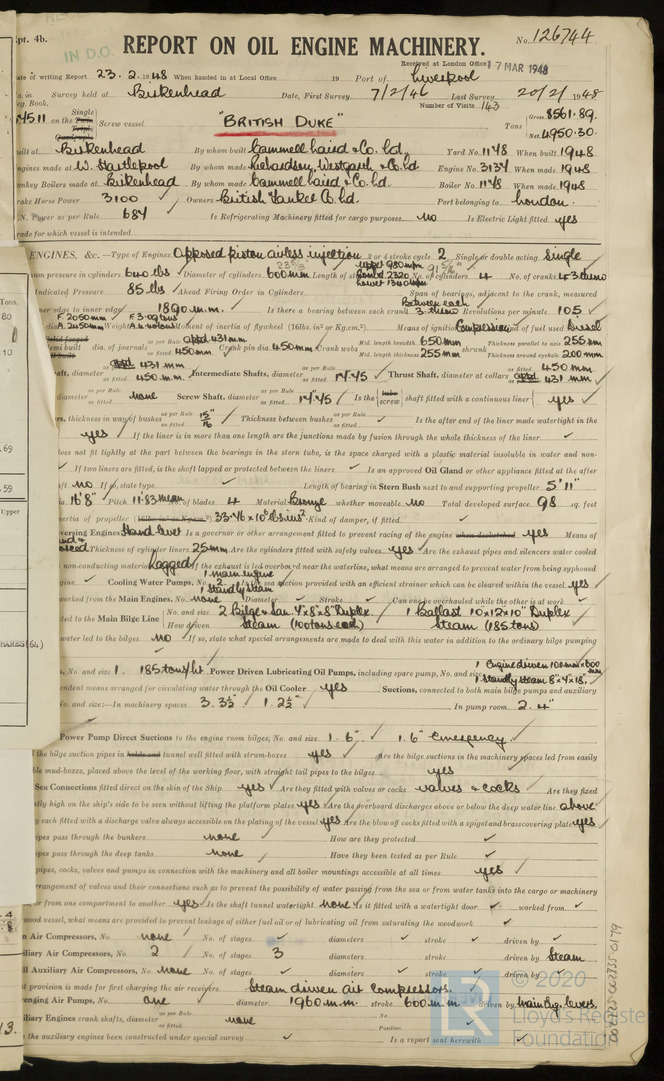 Rpt. 4b.
REPORT ON OIL ENGINE MACHINERY.
No. 126744
IN D.O.
Received at London Office 17 MAR 1948
Date of writing Report 23.2.1948 When handed in at Local Office 19 Port of Liverpool
No. in Survey held at Birkenhead Date, First Survey 7/2/46 Last Survey 20/2/1948
Reg. Book. Number of Visits 143
on the Single Triple Quadruple Screw vessel "BRITISH DUKE" Tons Gross 8561.89 Net 4950.30
Built at Birkenhead By whom built Cammell Laird & Co. Ld. Yard No. 1178 When built 1948
Engines made at W. Hartlepool By whom made Richardsons, Westgarth & Co. Ld Engine No. 3137 When made 1948
Donkey Boilers made at Birkenhead By whom made Cammell Laird & Co. Ld. Boiler No. 1178 When made 1948
Brake Horse Power 3100 Owners British Tanker Co. Ld. Port belonging to London.
N. Power as per Rule 687 Is Refrigerating Machinery fitted for cargo purposes. no Is Electric Light fitted yes
Trade for which vessel is intended
ENGINES, &c. —Type of Engines Opposed piston airless injection 2 or 4 stroke cycle 2 Single or double acting Single
pressure in cylinders 640 lbs Diameter of cylinders 600mm Length of stroke Upper 980mm Comb'd 2320 Lower 1340mm No. of cylinders 4 No. of cranks 4
Indicated Pressure 85 lbs Ahead Firing Order in Cylinders Span of bearings, adjacent to the crank, measured
inner edge to inner edge 1890 m.m. Is there a bearing between each crank Revolutions per minute 105
F. 2050mm A. 2150mm Weight Moment of inertia of flywheel (16lbs. in² or Kg.cm².) Means of ignition Compression Kind of fuel used Diesel
dia. of journals as per Rule appd. 431 mm as fitted 450mm Crank pin dia. 450mm Crank webs Mid. length breadth 650mm Mid. length thickness 255mm shrunk Thickness parallel to axis 255mm Thickness around eyehole 200mm
Shaft, diameter as per Rule appd. 431 mm as fitted 450 m.m. Intermediate Shafts, diameter as per Rule as fitted 14".45 Thrust Shaft, diameter at collars as per Rule appd. 431 mm as fitted 450 mm
diameter as per Rule as fitted none Screw Shaft, diameter as per Rule as fitted 14".45 Is the tube screw shaft fitted with a continuous liner yes
thickness in way of bushes as per Rule as fitted 15"/16 Thickness between bushes as per Rule as fitted Is the after end of the liner made watertight in the
yes If the liner is in more than one length are the junctions made by fusion through the whole thickness of the liner
does not fit tightly at the part between the bearings in the stern tube, is the space charged with a plastic material insoluble in water and non-
If two liners are fitted, is the shaft lapped or protected between the liners Is an approved Oil Gland or other appliance fitted at the after
no If so, state type Length of bearing in Stern Bush next to and supporting propeller 5' 11"
dia. 16'8" Pitch 11'.83 mean No. of blades 4 Material Bronze whether moveable no Total developed surface 98 sq. feet
inertia of propeller 33.76 x 10⁶ lbs ins² Kind of damper, if fitted
Reversing Engines Hand lever Is a governor or other arrangement fitted to prevent racing of the engine when declutched yes Means of
Thickness of cylinder liners 25mm Are the cylinders fitted with safety valves yes Are the exhaust pipes and silencers water cooled
non-conducting material Lagged If the exhaust is led overboard near the waterline, what means are arranged to prevent water from being syphoned
engine Cooling Water Pumps, No. 2 1 main engine 1 Standby steam sea suction provided with an efficient strainer which can be cleared within the vessel yes
worked from the Main Engines, No. none Diameter Stroke Can one be overhauled while the other is at work
to the Main Bilge Line No. and size 2 Bilge & San. 7x8x8" Duplex. 1 Ballast 10x12x10" Duplex
How driven Steam (100 tons each) Steam (185 tons)
water led to the bilges no If so, state what special arrangements are made to deal with this water in addition to the ordinary bilge pumping
No. and size 1. 185 tons/hr Power Driven Lubricating Oil Pumps, including spare pump, No. and size 1 Engine driven 1 Standby steam 8"x7x18".
independent means arranged for circulating water through the Oil Cooler yes Suctions, connected to both main bilge pumps and auxiliary
No. and size:—In machinery spaces 3. 3½" 1. 2½" In pump room 2. 4"
Power Pump Direct Suctions to the engine room bilges, No. and size 1. 6" 1. 6" emergency
the bilge suction pipes in holds and tunnel well fitted with strum-boxes yes Are the bilge suctions in the machinery spaces led from easily
mud-boxes, placed above the level of the working floor, with straight tail pipes to the bilges yes
Sea Connections fitted direct on the skin of the Ship yes Are they fitted with valves or cocks valves & cocks Are they fixed
high on the ship's side to be seen without lifting the platform plates yes Are the overboard discharges above or below the deep water line above
each fitted with a discharge valve always accessible on the plating of the vessel yes Are the blow off cocks fitted with a spigot and brass covering plate yes
pipes pass through the bunkers none How are they protected
pipes pass through the deep tanks none Have they been tested as per Rule
pipes, cocks, valves and pumps in connection with the machinery and all boiler mountings accessible at all times yes
arrangement of valves and their connections such as to prevent the possibility of water passing from the sea or from water tanks into the cargo or machinery
or from one compartment to another yes Is the shaft tunnel watertight none Is it fitted with a watertight door worked from
wood vessel, what means are provided to prevent leakage of either fuel oil or lubricating oil from saturating the woodwork
Air Compressors, No. none No. of stages diameters stroke driven by
Auxiliary Air Compressors, No. 2 No. of stages 3 diameters stroke driven by Steam
Auxiliary Air Compressors, No. none No. of stages diameters stroke driven by
provision is made for first charging the air receivers Steam driven air compressors.
Scavenging Air Pumps, No. one diameter 1960 m.m. stroke 600 m.m. driven by Main Eng. levers.
Auxiliary Engines crank shafts, diameter as per Rule as fitted none No Position
the auxiliary engines been constructed under special survey Is a report sent herewith
© 2020
Lloyd's Register
Foundation
LR